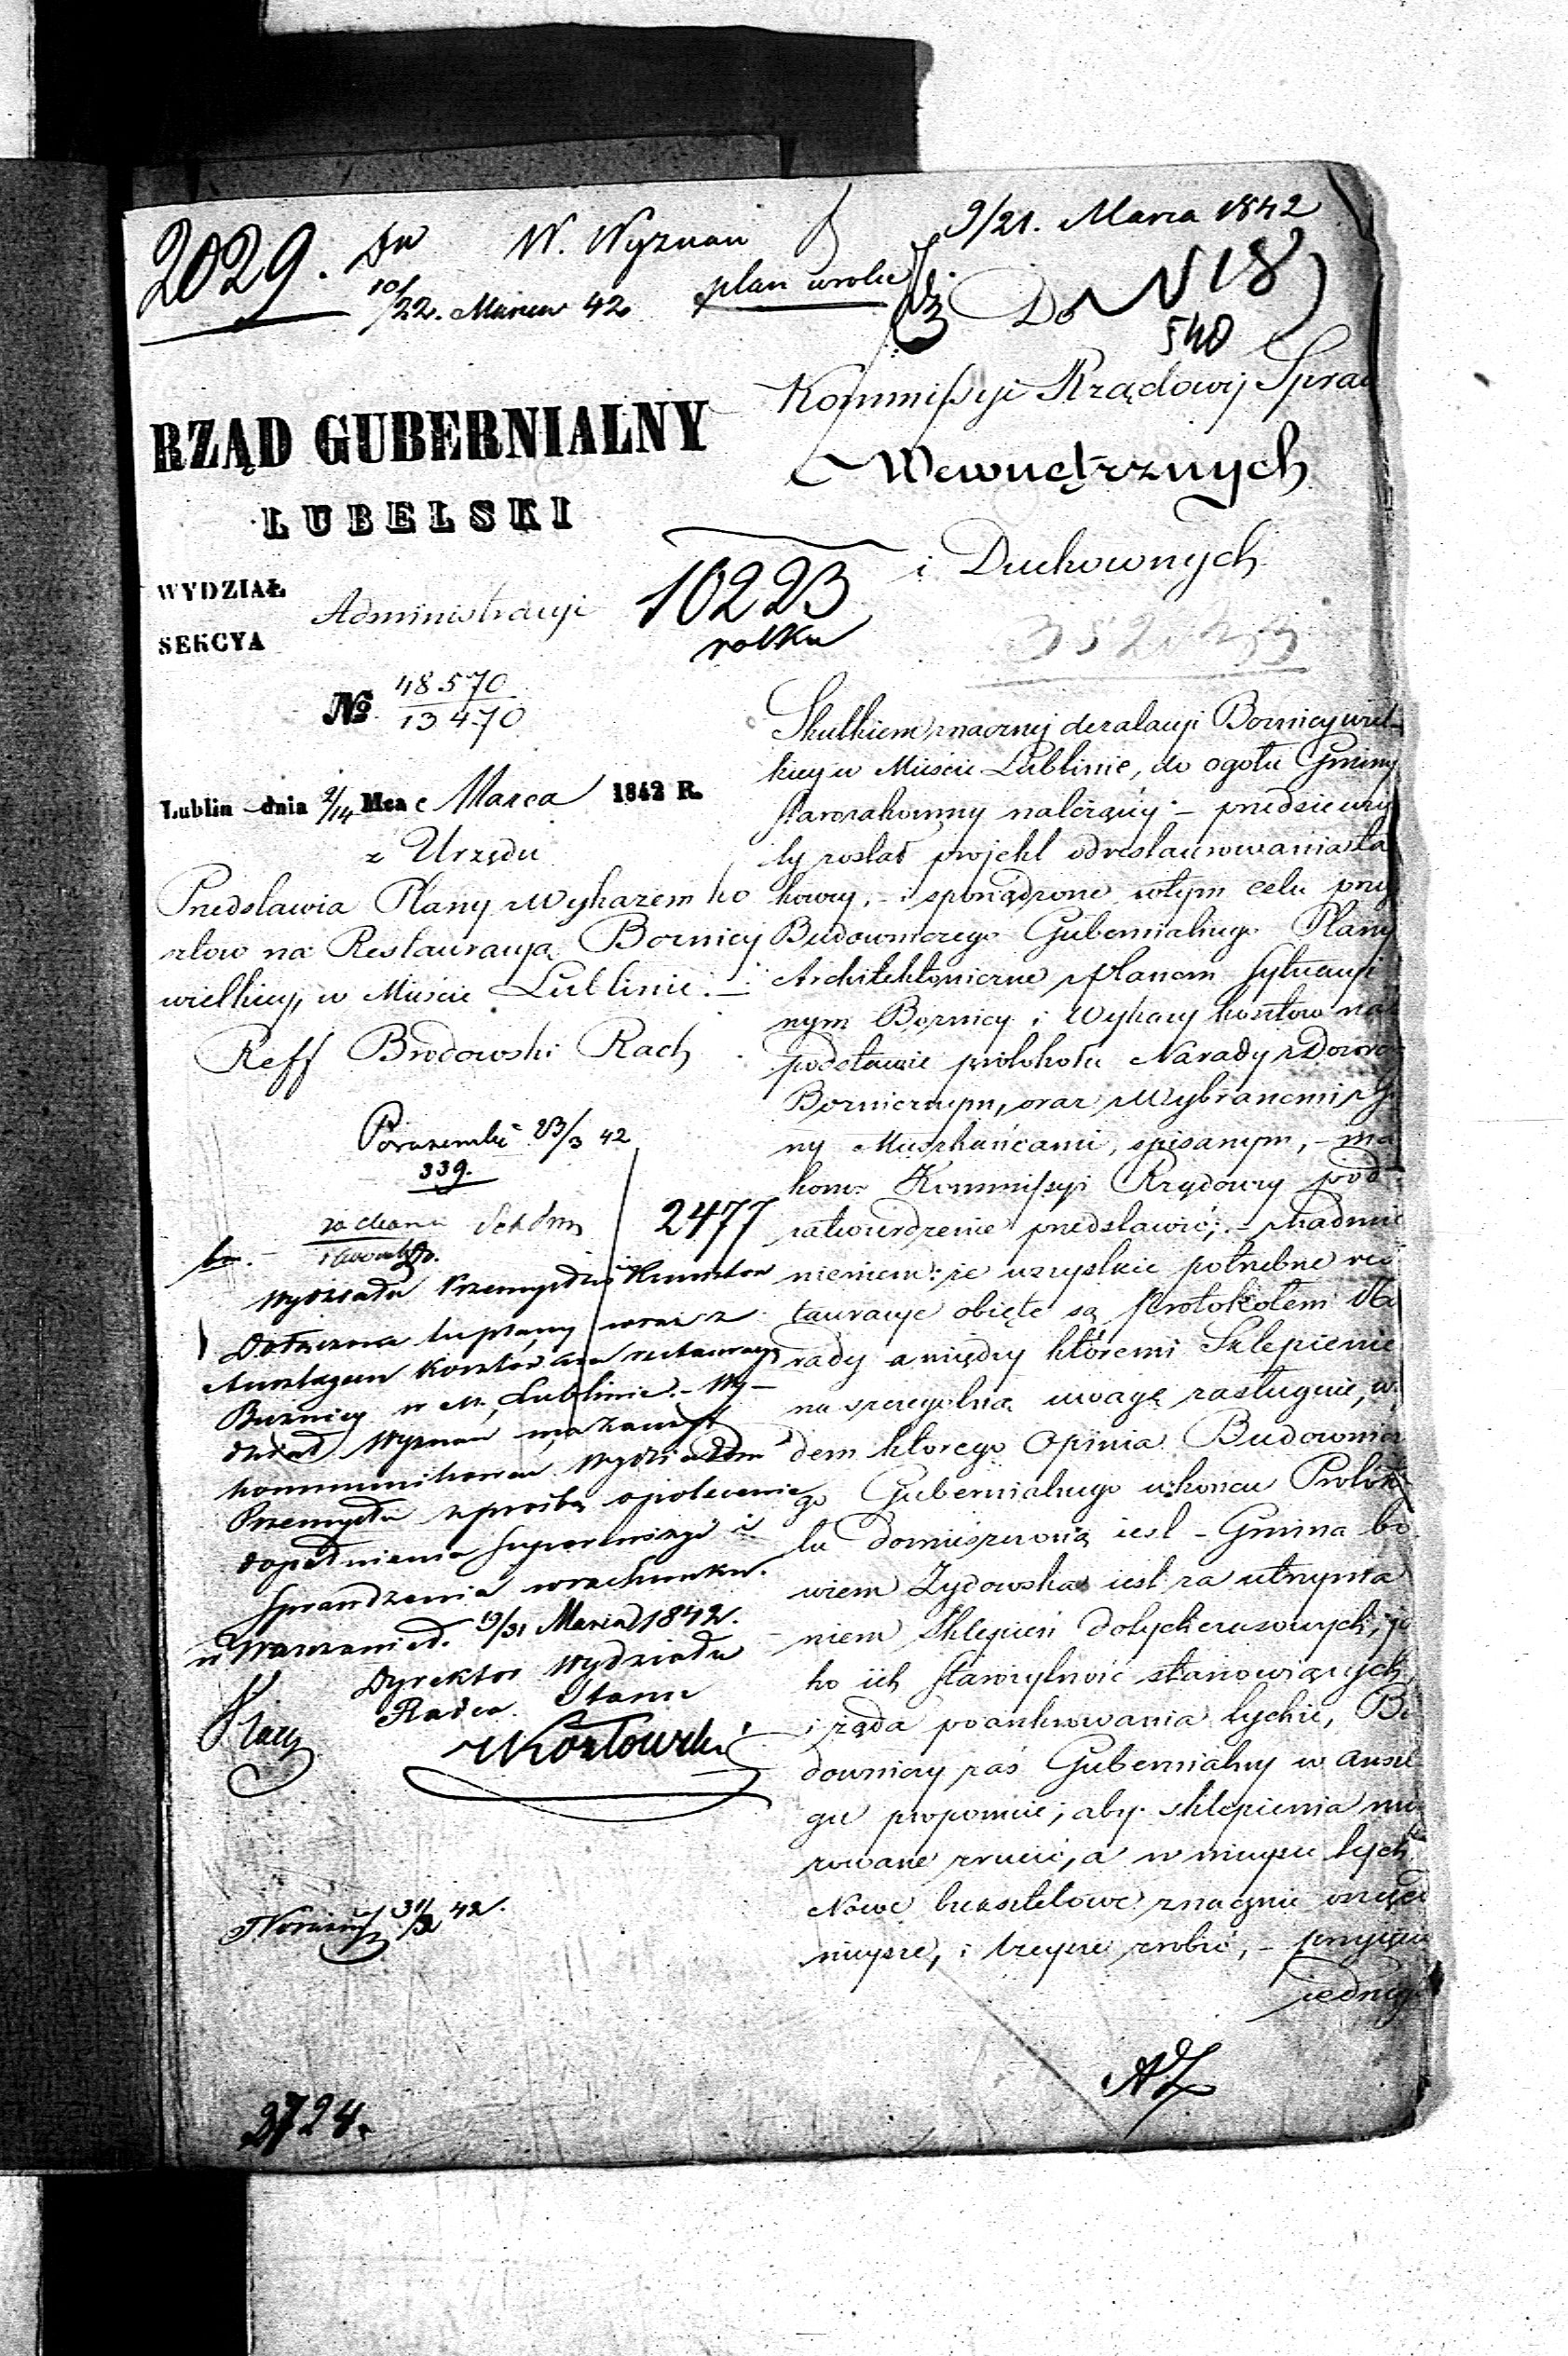 2029.
W. Wyznań
10/22. Marca 42
plan w rolce
9/21. Marca 1842
Do N 18
540
Kommissyi Rządowej Spraw
Wewnętrznych
i Duchownych
RZĄD GUBERNIALNY
LUBELSKI
WYDZIAŁ
Administracyi
SEKCYA
10223
rolka
№ 48570
13470
Lublin dnia 2/14 Mca Marca 1842 R.
z Urzędu
Przedstawia Plany z Wykazem ko
sztow na Restauracyą Bożnicy
wielkiey, w Mieście Lublinie.
Reff Brodowski Rach
23/3 42
339.
2477
Wydziału Przemysłu i Kunsztow
Dołączone tu plany wraz z
Anszlagem kosztow na restauracyą
Bużnicy w M. Lublinie. Wy-
dział Wyznań ma zaszczyt
kommunikować Wydziałowi
Przemysłu z prośbą o polecenie
dopełnienia superrewizyi i
sprawdzenia w rachunku.
w Warszawie d. 19/31 Marca 1842.
Dyrektor Wydziału
Radca Stanu
Kozłowski
31/3 42.
2724.
Skutkiem znacznej dezolacyi Bożnicy wiel-
kiey w Mieście Lublinie, do ogołu Gminy
starozakonny należącéy - przedsięwzię
ty został projekt odrestaurowania ta
kowey, - i sporządzone w tym celu przez
Budowniczego Gubernialnego Plany
Architektoniczne z Planem sytuacyi
nym Bożnicy i Wykazy kosztow na
podstawie protokołu Narady z Dozorem
Bożniczym, oraz z Wybranemi z Gmi
ny Mieszkańcami, spisanym, - ma
honor Kommissyi Rządowey pod
zatwierdzenie przedstawić; - z nadmie
nieniem: że wszystkie potrzebne res
tauracye objęte są Protokołem Na
rady a między któremi Sklepienie
na szczegolną uwagę zasługuie, wzglę
dem ktorego Opinia Budownicze
go Gubernialnego w końcu Protoko
łu domieszczoną iest - Gmina bo
wiem Żydowska iest za utrzyma
niem Sklepień dotychczasowych, ja
ko ich starożytność stanowiących,
i żąda poankrowania tychże, Bu
downiczy zaś Gubernialny w anszla
gu proponuie, aby sklepienia mu
rowane zrucić, a w mieysce tych
Nowe buksztelowe znacznie
i lżeysze zrobić, - przyięcie
jednego
AZ